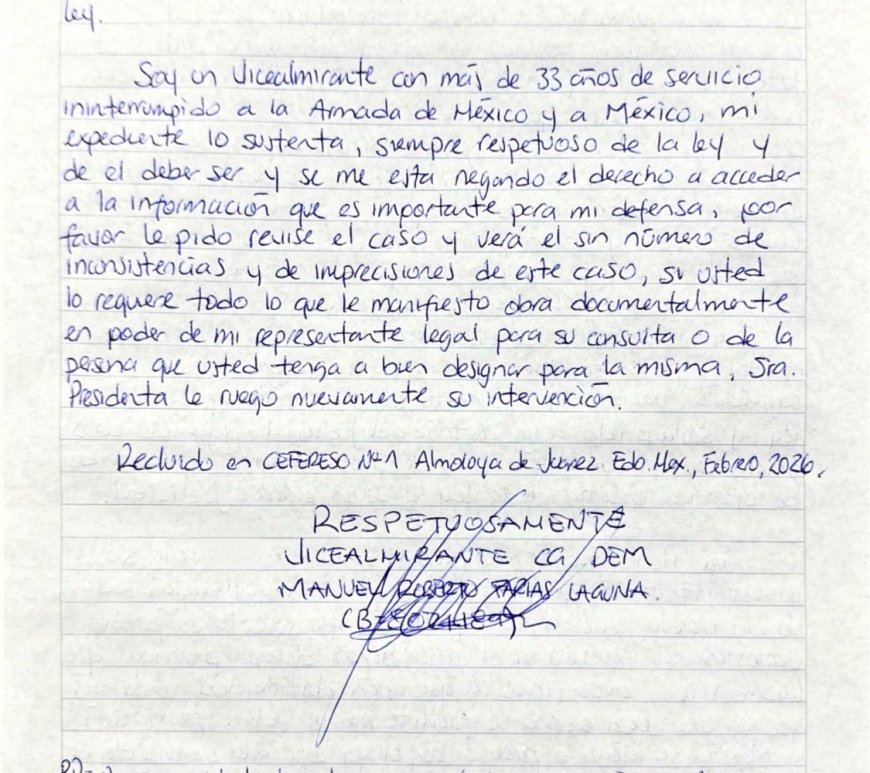 ley.
Soy un Vicealmirante con más de 33 años de servicio
ininterrumpido a la Armada de México y a México, mi
expediente lo sustenta, siempre respetuoso de la ley y
de el deber ser y se me esta negando el derecho a acceder
a la información que es importante para mi defensa, por
favor le pido revise el caso y verá el sin número de
inconsistencias y de imprecisiones de este caso, si usted
lo requiere todo lo que le manifiesto obra documentalmente
en poder de mi representante legal para su consulta o de la
persona que usted tenga a bien designar para la misma, Sra.
Presidenta le ruego nuevamente su intervención.
Recluido en CEFERESO No 1 Almoloya de Juarez Edo. Mex., Febrero, 2026.
RESPETUOSAMENTE
VICEALMIRANTE CG DEM
MANUEL ROBERTO FARIAS LAGUNA.